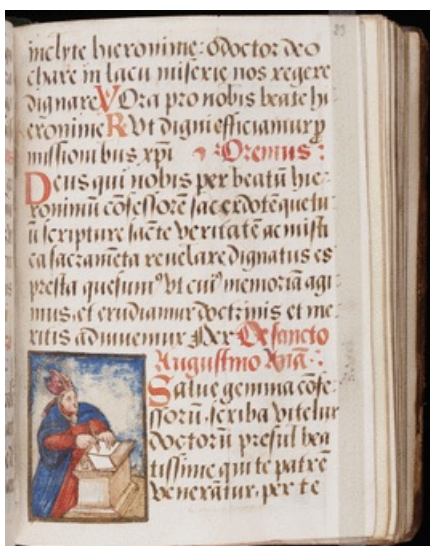 inclyte hieronime: o doctor deo
chare in lacu miserie nos regere
dignare V Ora pro nobis beate hi
eronime R Vt digni efficiamur p̱
missionibus xp̄i Oremus:
Deus qui nobis per beatū hie-
ronimū cōfessorē sacerdotē quetu
ū scripture sacte veritatē ac misti
ca sacramēta reuelare dignatus es
presta quesumꝰ vt cuiꝰ memoriā agi
mus, et erudiamur doctrinis et me
ritis adiuuemur Per De sancto
Augustino Anā:
Salue gemma cōfe-
ssorū, scriba vite lux
doctorū presul bea
tissime qui te patrē
venerātur, per te